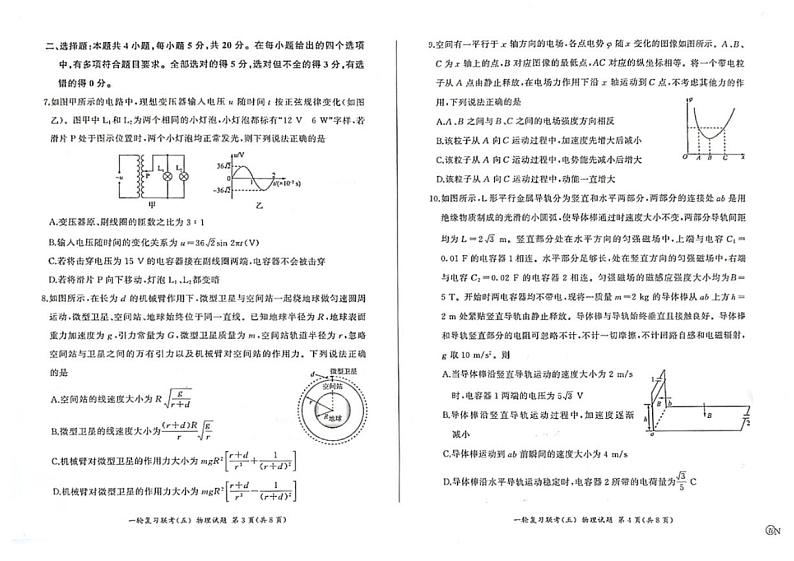 二、选择题:本题共4小题,每小题5分,共20分。在每小题给出的四个选项
中,有多项符合题目要求。全部选对的得5分,选对但不全的得3分,有选
错的得0分。
7.如图甲所示的电路中,理想变压器输入电压u随时间t按正弦规律变化(如图
乙)。图甲中L₁和L₂为两个相同的小灯泡,小灯泡都标有“12 V 6 W”字样,若
滑片P处于图示位置时,两个小灯泡均正常发光,则下列说法正确的是
~u
P
L₁
L₂
甲
u/V
36√2
0
1
2
-36√2
t/(×10⁻² s)
乙
A.变压器原、副线圈的匝数之比为3∶1
B.输入电压随时间的变化关系为u=36√2sin 2πt(V)
C.若将击穿电压为15 V的电容器接在副线圈两端,电容器不会被击穿
D.若将滑片P向下移动,灯泡L₁、L₂都变暗
8.如图所示,在长为d的机械臂作用下,微型卫星与空间站一起绕地球做匀速圆周
运动,微型卫星、空间站、地球始终位于同一直线。已知地球半径为R,地球表面
重力加速度为g,引力常量为G,微型卫星质量为m,空间站轨道半径为r,忽略
空间站与卫星之间的万有引力以及机械臂对空间站的作用力。下列说法正确
的是
d
微型卫星
空间站
地球
A.空间站的线速度大小为R√(g/(r+d))
B.微型卫星的线速度大小为((r+d)R/r)√(g/r)
C.机械臂对微型卫星的作用力大小为mgR²[(r+d)/r³+1/(r+d)²]
D.机械臂对微型卫星的作用力大小为mgR²[(r+d)/r³-1/(r+d)²]
一轮复习联考(五) 物理试题 第3页(共8页)
9.空间有一平行于x轴方向的电场,各点电势φ随x变化的图像如图所示。A、B、
C为x轴上的点,B对应图像的最低点,AC对应的纵坐标相等。将一个带电粒
子从A点由静止释放,在电场力作用下沿x轴运动到C点,不考虑其他力的作
用,下列说法正确的是
φ
O
A
B
C
x
A.A、B之间与B、C之间的电场强度方向相反
B.该粒子从A向C运动过程中,加速度先增大后减小
C.该粒子从A向C运动过程中,电势能先减小后增大
D.该粒子从A向C运动过程中,动能一直增大
10.如图所示,L形平行金属导轨分为竖直和水平两部分,两部分的连接处ab是用
绝缘物质制成的光滑的小圆弧,使导体棒通过时速度大小不变,两部分导轨间距
均为L=2√3 m。竖直部分处在水平方向的匀强磁场中,上端与电容C₁=
0.01 F的电容器1相连。水平部分足够长,处在竖直方向的匀强磁场中,右端
与电容C₂=0.02 F的电容器2相连。匀强磁场的磁感应强度大小均为B=
5 T。开始时两电容器均不带电,现将一质量m=2 kg的导体棒从ab上方h=
2 m处紧贴竖直导轨由静止释放。导体棒与导轨始终垂直且接触良好。导体棒
和导轨竖直部分的电阻可忽略不计,不计一切摩擦,不计回路自感和电磁辐射,
g取10 m/s²。则
A.当导体棒沿竖直导轨运动的速度大小为2 m/s
时,电容器1两端的电压为5√3 V
B.导体棒沿竖直导轨运动过程中,加速度逐渐
减小
C.导体棒运动到ab前瞬间的速度大小为4 m/s
D.导体棒沿水平导轨运动稳定时,电容器2所带的电荷量为√3/5 C
1
B
b
h
a
B
2
一轮复习联考(五) 物理试题 第4页(共8页)